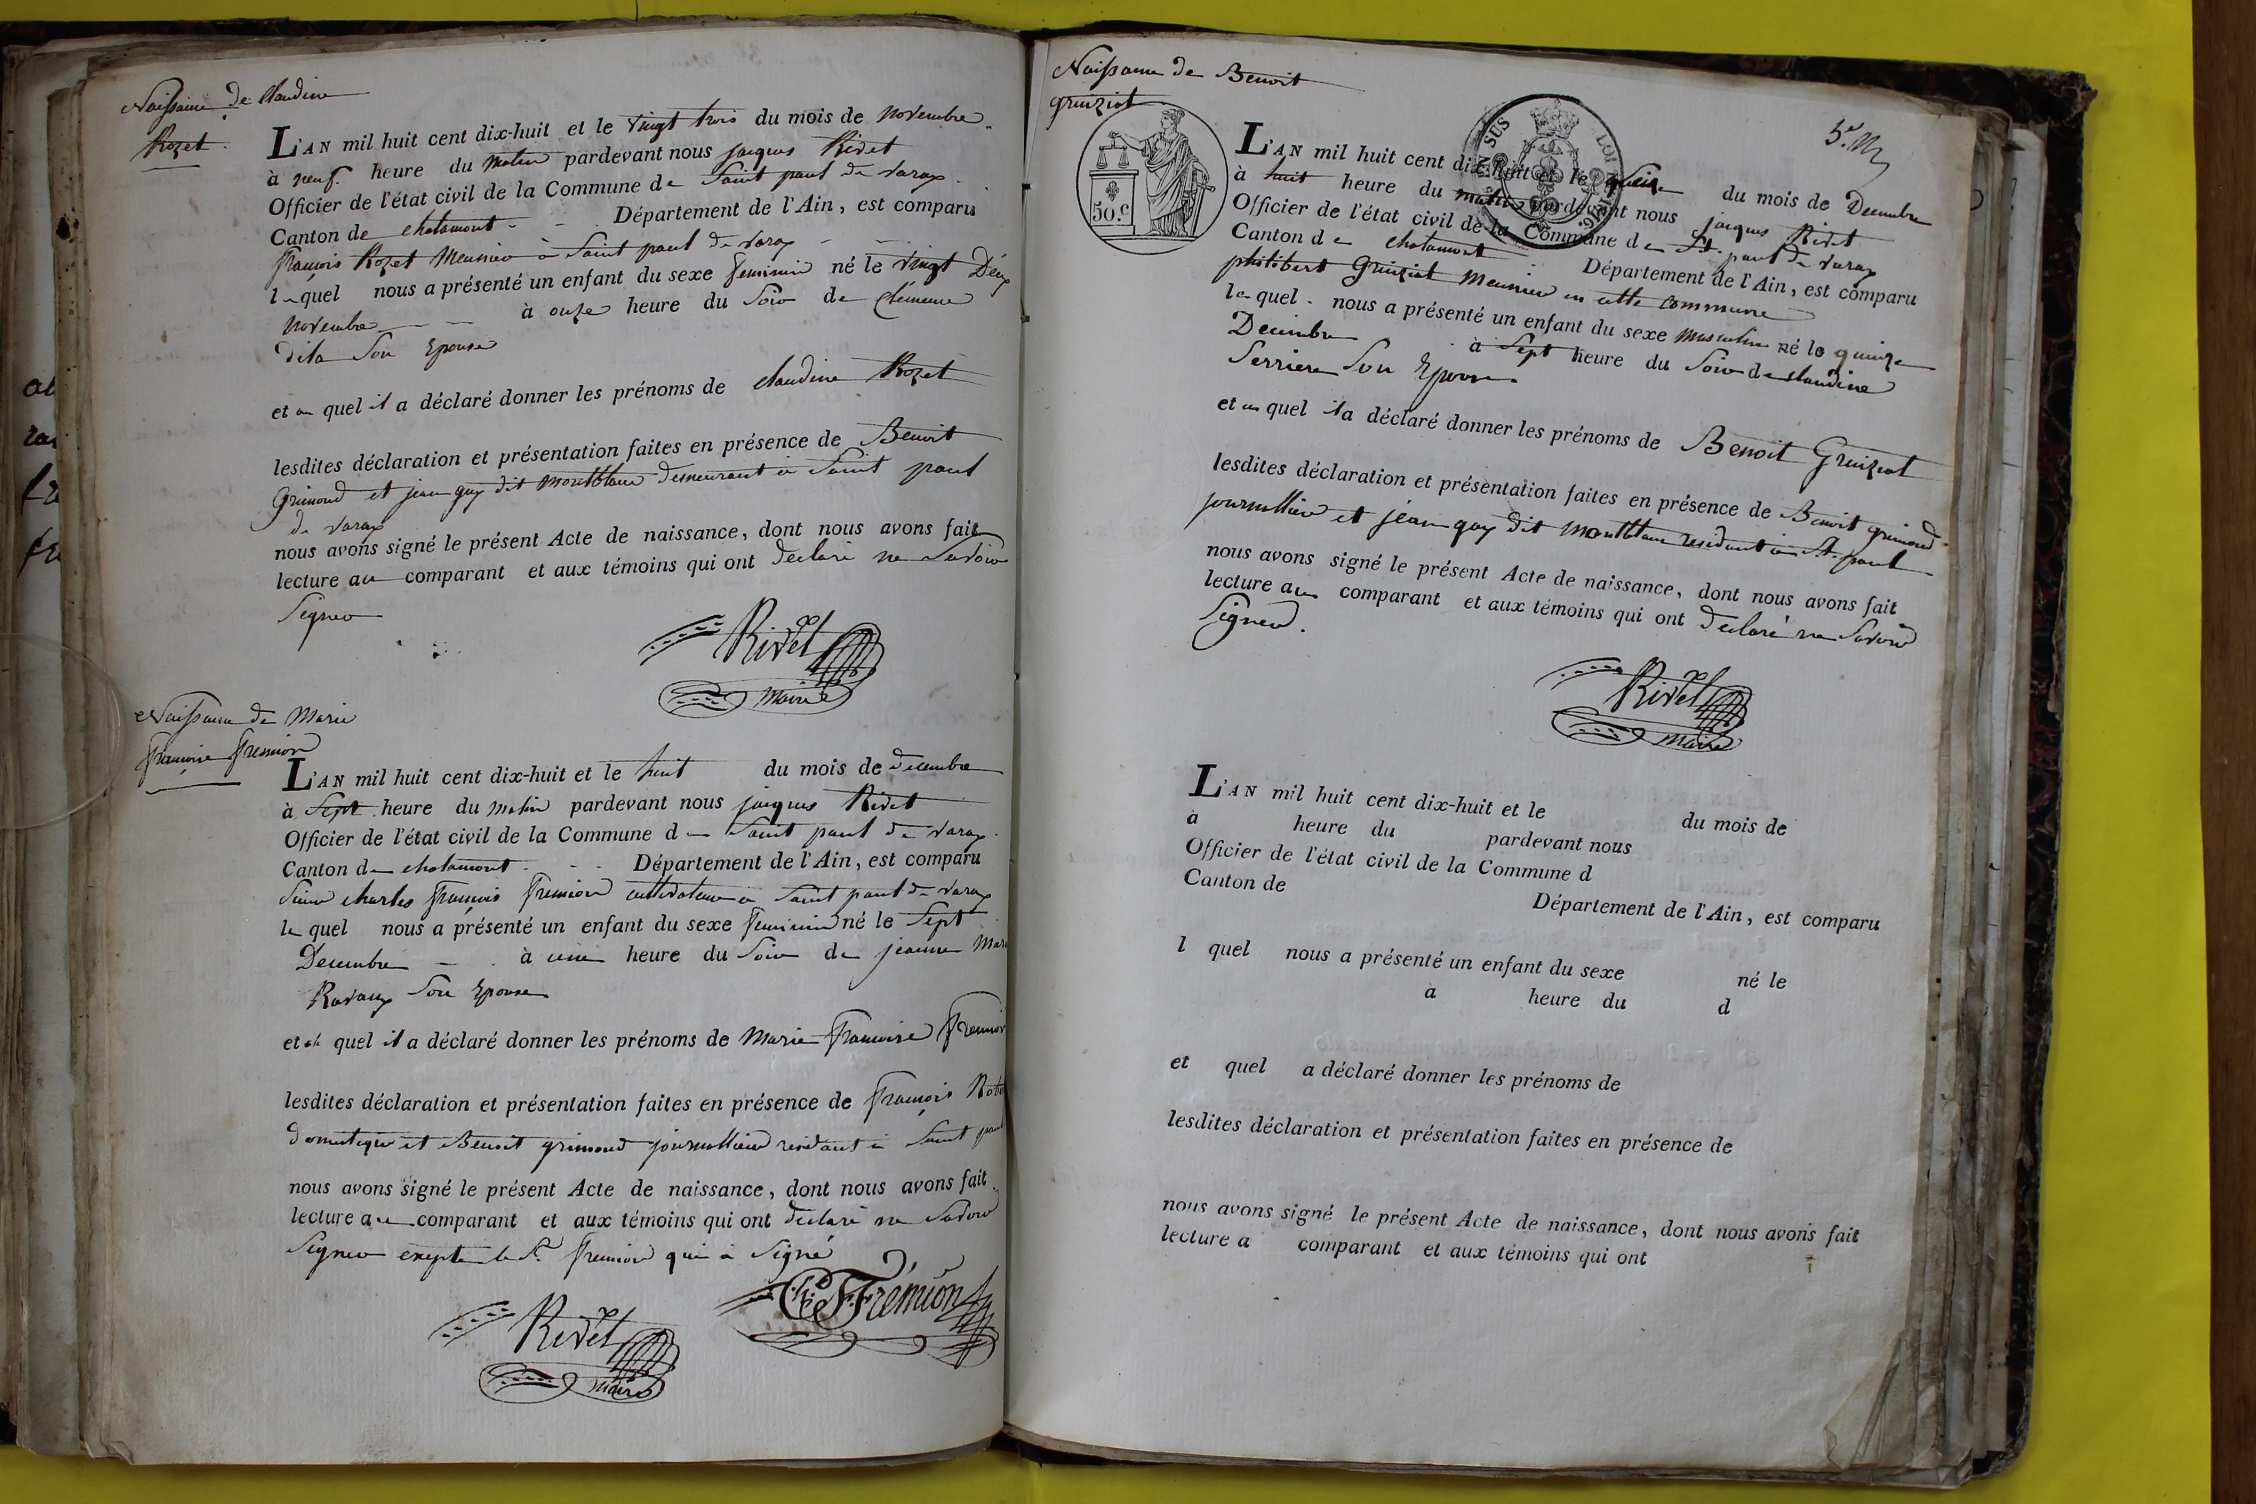 Naissance de Claudine
Rozet
L'AN mil huit cent dix-huit et le vingt trois du mois de novembre
à neuf heure du matin pardevant nous jacques Rivet
Officier de l'état civil de la Commune de Saint paul de varax
Canton de chalamont Département de l'Ain, est comparu
françois Rozet Meunier à Saint paul de varax
le quel nous a présenté un enfant du sexe feminin né le vingt Deux
novembre à onze heure du Soir de Clémence
dita Son Epouse
et au quel il a déclaré donner les prénoms de claudine Rozet
lesdites déclaration et présentation faites en présence de Benoit
Grimond et jean guy dit montblanc demeurant à Saint paul
de varax
nous avons signé le présent Acte de naissance, dont nous avons fait
lecture au comparant et aux témoins qui ont declaré ne Savoir
Signer
Rivet
Maire
Naissance de Marie
françoise fremion
L'AN mil huit cent dix-huit et le huit du mois de decembre
à Sept heure du matin pardevant nous jacques Rivet
Officier de l'état civil de la Commune de Saint paul de varax
Canton de chalamont Département de l'Ain, est comparu
Sieur charles françois fremion cultivateur a Saint paul de varax
le quel nous a présenté un enfant du sexe feminin né le Sept
Decembre à une heure du Soir de jeanne Mari
Ravaux Son Epouse
et au quel il a déclaré donner les prénoms de Marie françoise fremion
lesdites déclaration et présentation faites en présence de françois
domestique et Benoit grimond journallier residant à Saint paul
nous avons signé le présent Acte de naissance, dont nous avons fait
lecture au comparant et aux témoins qui ont declaré ne Savoir
Signer excepte le Sr. fremion qui à Signé
Ch. F. Frémion
Rivet
maire
Naissance de Benoit
gruiziat
50 c.
L'AN mil huit cent dix-huit et le quinze du mois de Decembre
à huit heure du matin pardevant nous jacques Rivet
Officier de l'état civil de la Commune de St. paul de varax
Canton de chalamont Département de l'Ain, est comparu
philibert Gruiziat Meunier en cette commune
le quel nous a présenté un enfant du sexe Masculin né le quinze
Decembre à Sept heure du Soir de claudine
Serriere Son Epouse
et au quel il a déclaré donner les prénoms de Benoit Gruiziat
lesdites déclaration et présentation faites en présence de Benoit grimond
journallier et jean guy dit montblanc residant à St. paul
nous avons signé le présent Acte de naissance, dont nous avons fait
lecture au comparant et aux témoins qui ont declaré ne Savoir
Signer.
Rivet
Maire
L'AN mil huit cent dix-huit et le du mois de
à heure du pardevant nous
Officier de l'état civil de la Commune d
Canton de
Département de l'Ain, est comparu
l quel nous a présenté un enfant du sexe né le
à heure du d
et quel a déclaré donner les prénoms de
lesdites déclaration et présentation faites en présence de
nous avons signé le présent Acte de naissance, dont nous avons fait
lecture a comparant et aux témoins qui ont